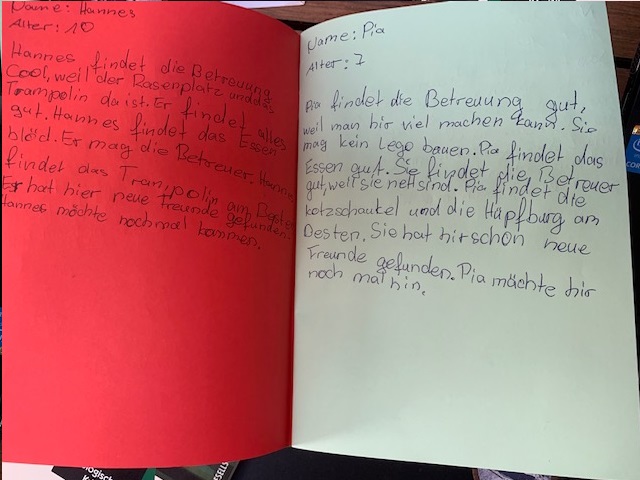 Name: Hannes
Alter: 10
Hannes findet die Betreuung
Cool, weil der Rasenplatz und das
Trampolin da ist. Er findet alles
gut. Hannes findet das Essen
blöd. Er mag die Betreuer. Hannes
findet das Trampolin am Besten
Er hat hier neue Freunde gefunden.
Hannes möchte nochmal kommen.
Name: Pia
Alter: 7
Pia findet die Betreuung gut,
weil man hir viel machen kann. Sie
mag kein Lego bauen. Pia findet das
Essen gut. Sie findet die Betreuer
gut, weil sie nett sind. Pia findet die
kotzschaukel und die Hüpfburg am
Besten. Sie hat hir schon neue
Freunde gefunden. Pia möchte hir
noch mal hin.